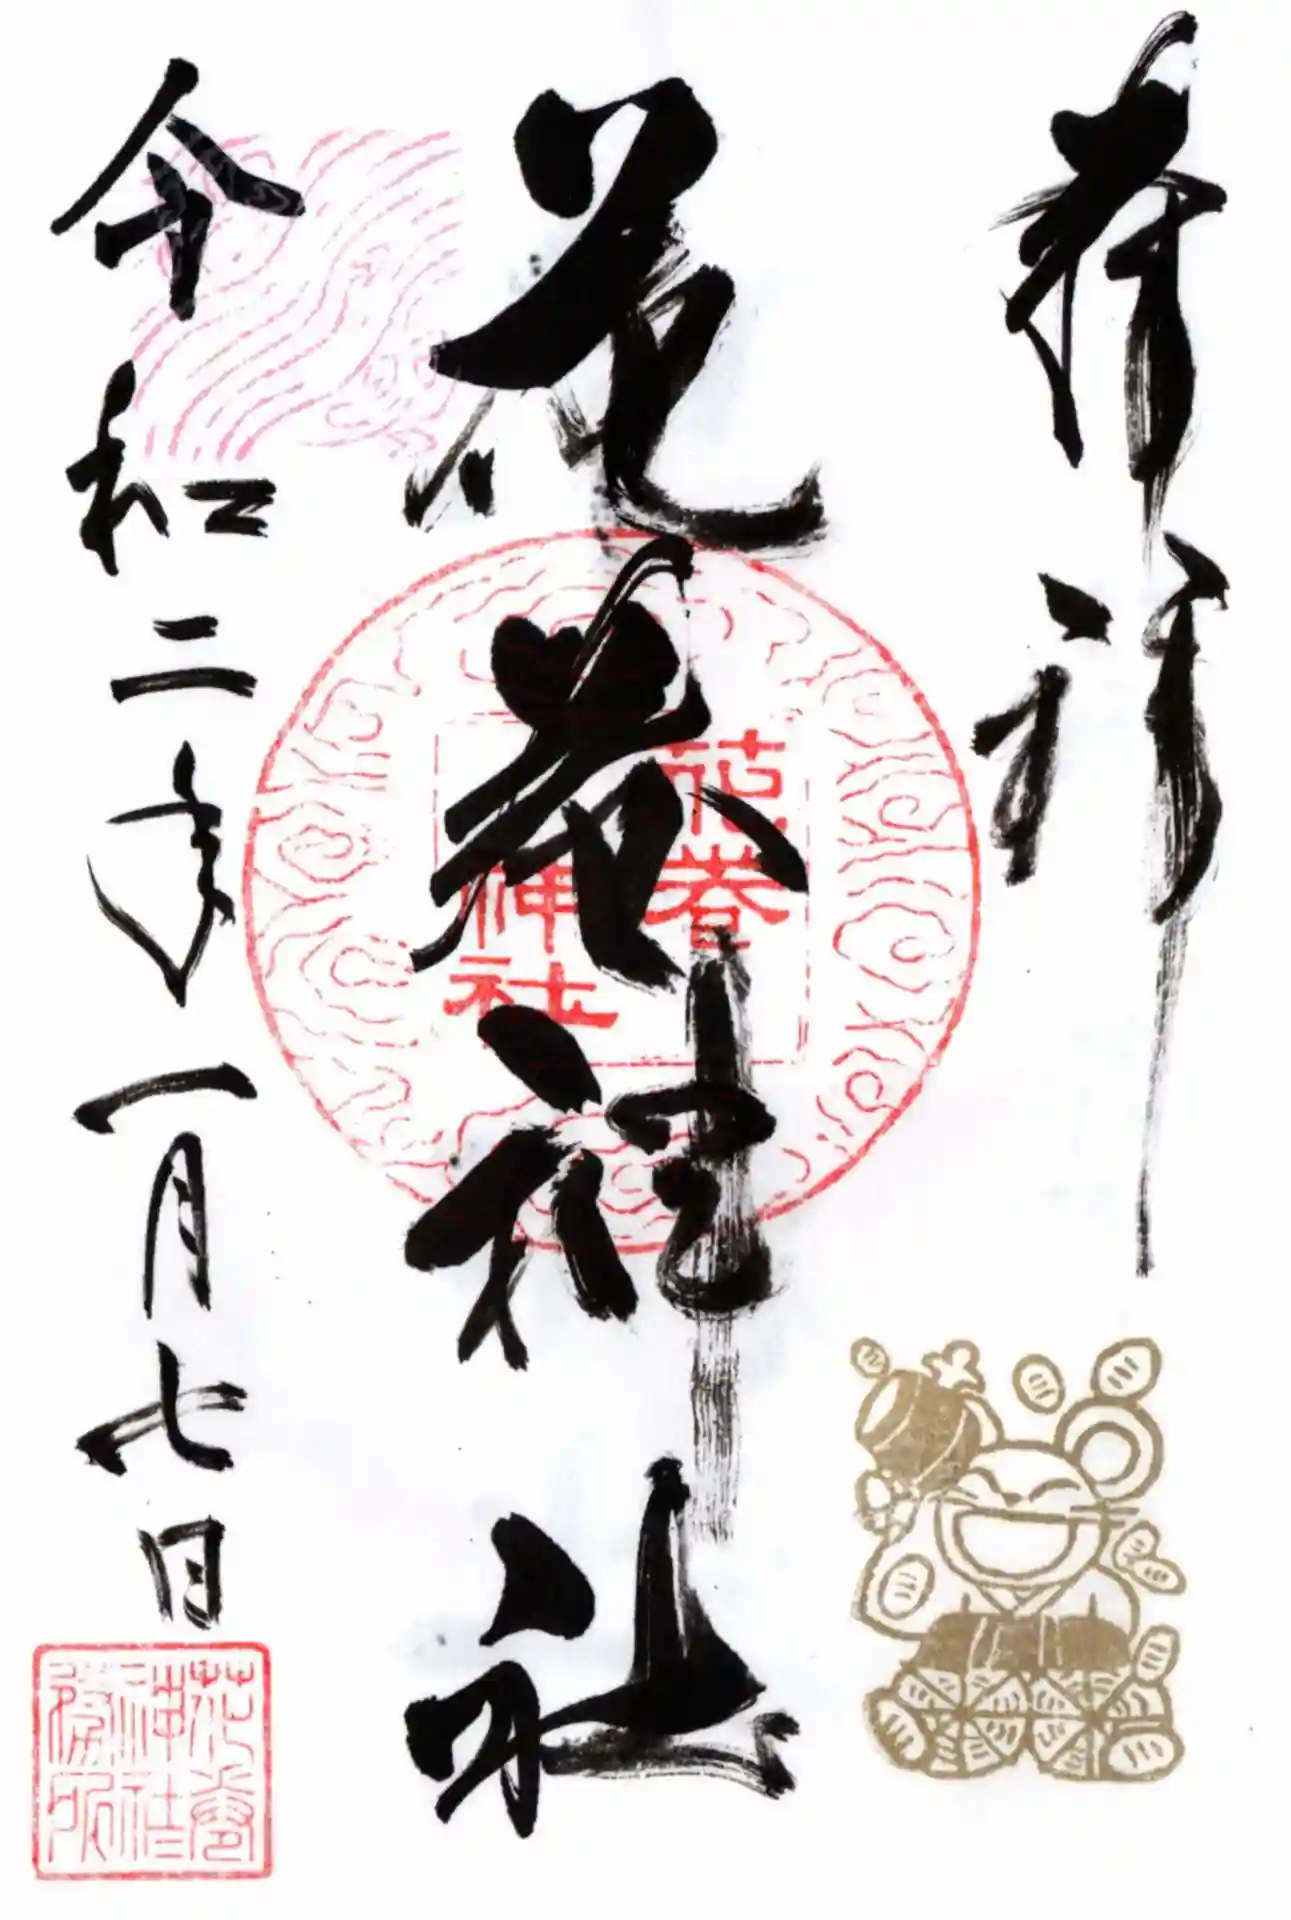 奉拝
花巻神社
花巻
神社
令和二年一月七日
花巻
神社
務所